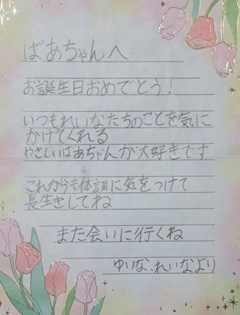 ばあちゃんへ
お誕生日おめでとう!
いつもれいなたちのことを気に
かけてくれる
やさしいばあちゃんが大好きです
これからも体調に気をつけて
長生きしてね
また会いに行くね
ゆいな、れいなより